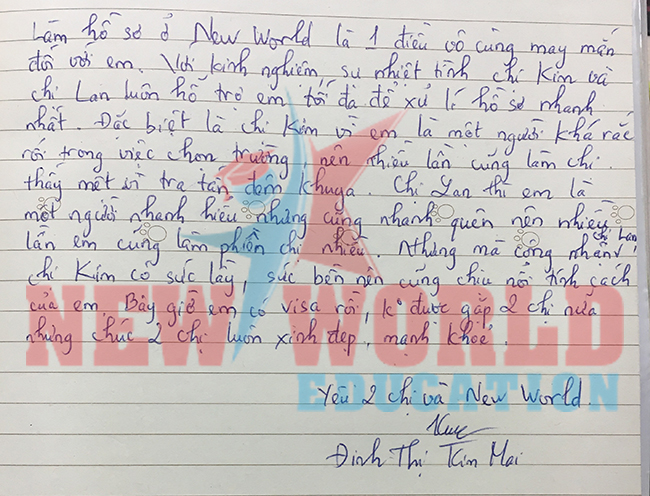 Làm hồ sơ ở New World là 1 điều vô cùng may mắn
đối với em. Với kinh nghiệm, sự nhiệt tình chị Kim và
chị Lan luôn hỗ trợ em tối đa để xử lí hồ sơ nhanh
nhất. Đặc biệt là chị Kim vì em là một người khá rắc
rối trong việc chọn trường, nên nhiều lần cũng làm chị
thấy mệt vì tra tấn đêm khuya. Chị Lan thì em là
một người nhanh hiểu nhưng cũng nhanh quên nên nhiều
lần em cũng làm phiền chị nhiều. Nhưng mà công nhận chị Lan,
chị Kim có sức lầy, sức bền nên cũng chịu nổi tính cách
của em. Bây giờ em có visa rồi, k° được gặp 2 chị nữa
nhưng chúc 2 chị luôn xinh đẹp, mạnh khoẻ.
Yêu 2 chị và New World.
Đinh Thị Kim Mai
NEW WORLD
EDUCATION